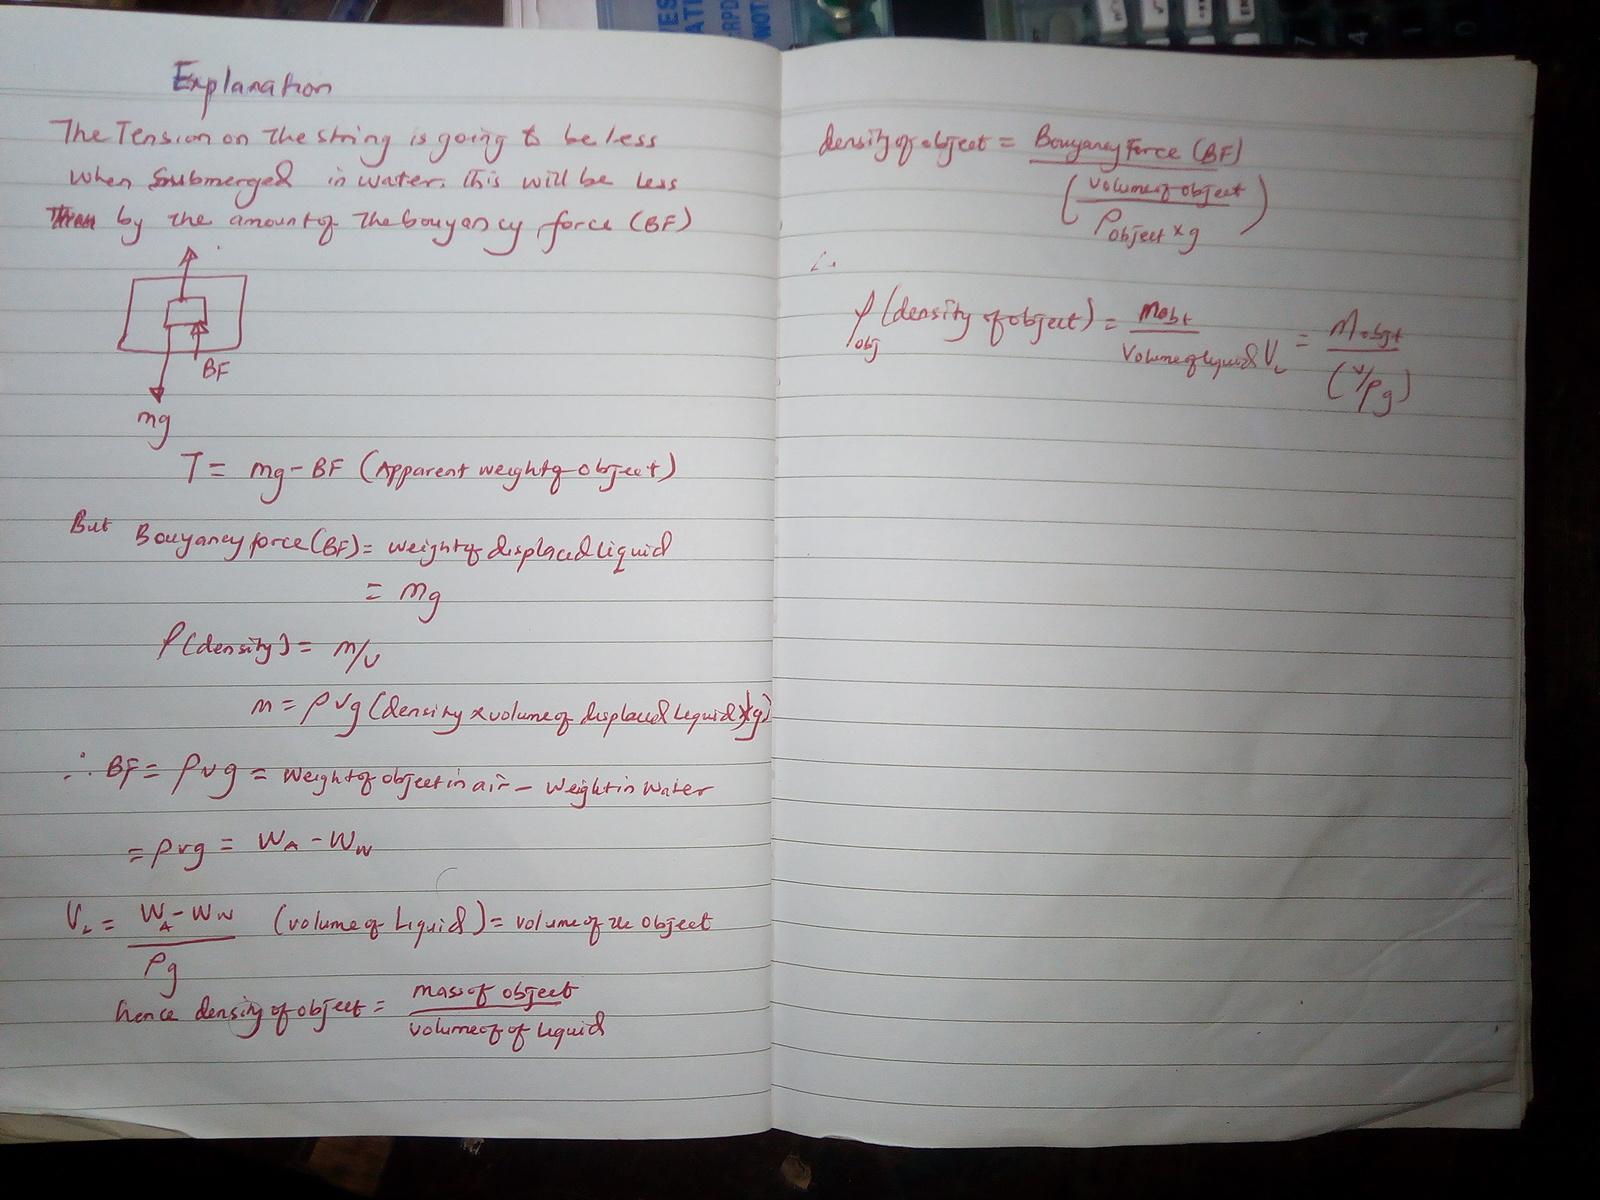 Explanation
The Tension on the string is going to be less
when submerged in water. This will be less
by the amount of the bouyancy force (BF)
BF
mg
T = mg - BF (Apparent weight of object)
But Bouyancy force (BF) = weight of displaced liquid
= mg
ρ (density) = m/v
m = ρvg (density x volume of displaced liquid x g)
∴ BF = ρvg = weight of object in air - weight in water
= ρvg = WA - WW
VL = WA - WW / ρg (volume of liquid) = volume of the object
hence density of object = mass of object / volume of of liquid
density of object = Bouyancy Force (BF) / (volume of object / ρobject x g)
ρobj (density of object) = mobt / Volume of liquid VL = Mobjt / (v/ρg)
VES
ATI
-RPD
NOT